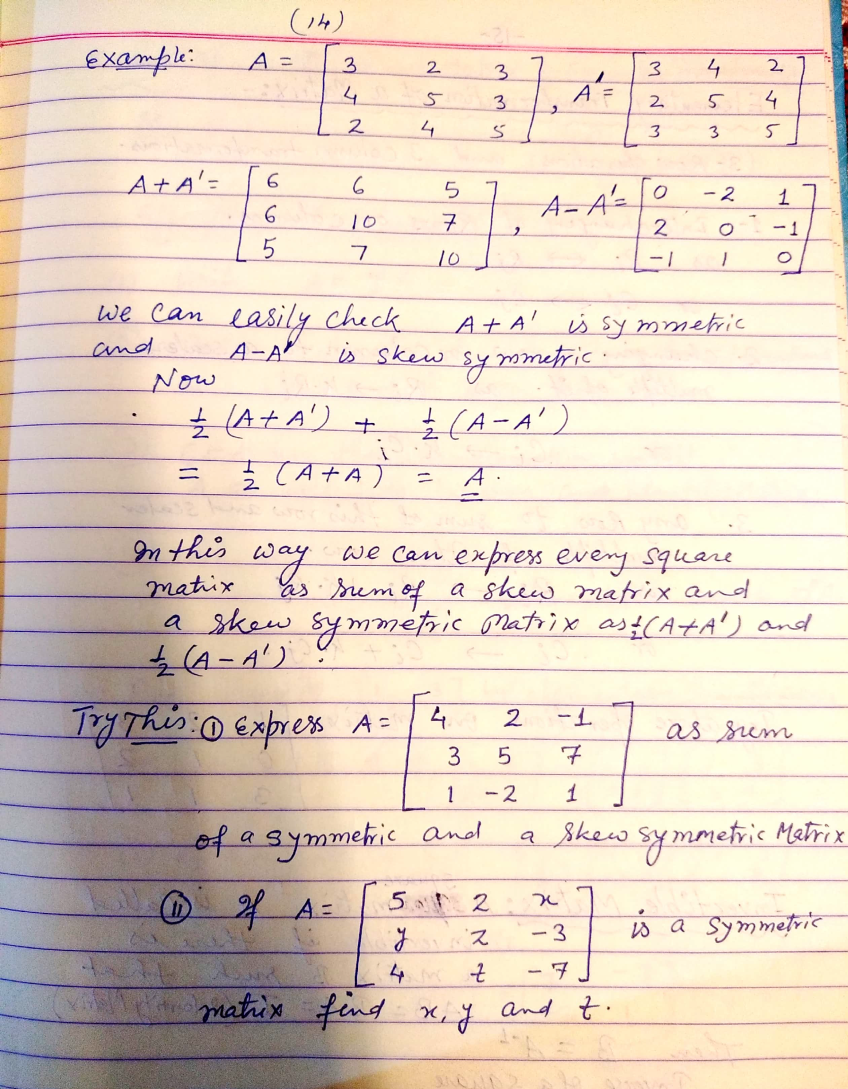 (14)
Example: A = [3 2 3; 4 5 3; 2 4 5], A' = [3 4 2; 2 5 4; 3 3 5]
A + A' = [6 6 5; 6 10 7; 5 7 10], A - A' = [0 -2 1; 2 0 -1; -1 1 0]
we can easily check A + A' is symmetric
and A-A' is skew symmetric.
Now
1/2 (A + A') + 1/2 (A - A')
= 1/2 (A + A) = A.
In this way we can express every square
matrix as sum of a skew matrix and
a skew symmetric Matrix as 1/2 (A+A') and
1/2 (A - A').
Try This: (i) Express A = [4 2 -1; 3 5 7; 1 -2 1] as sum
of a symmetric and a skew symmetric Matrix
(ii) If A = [5 2 x; y z -3; 4 t -7] is a symmetric
matrix find x, y and t.